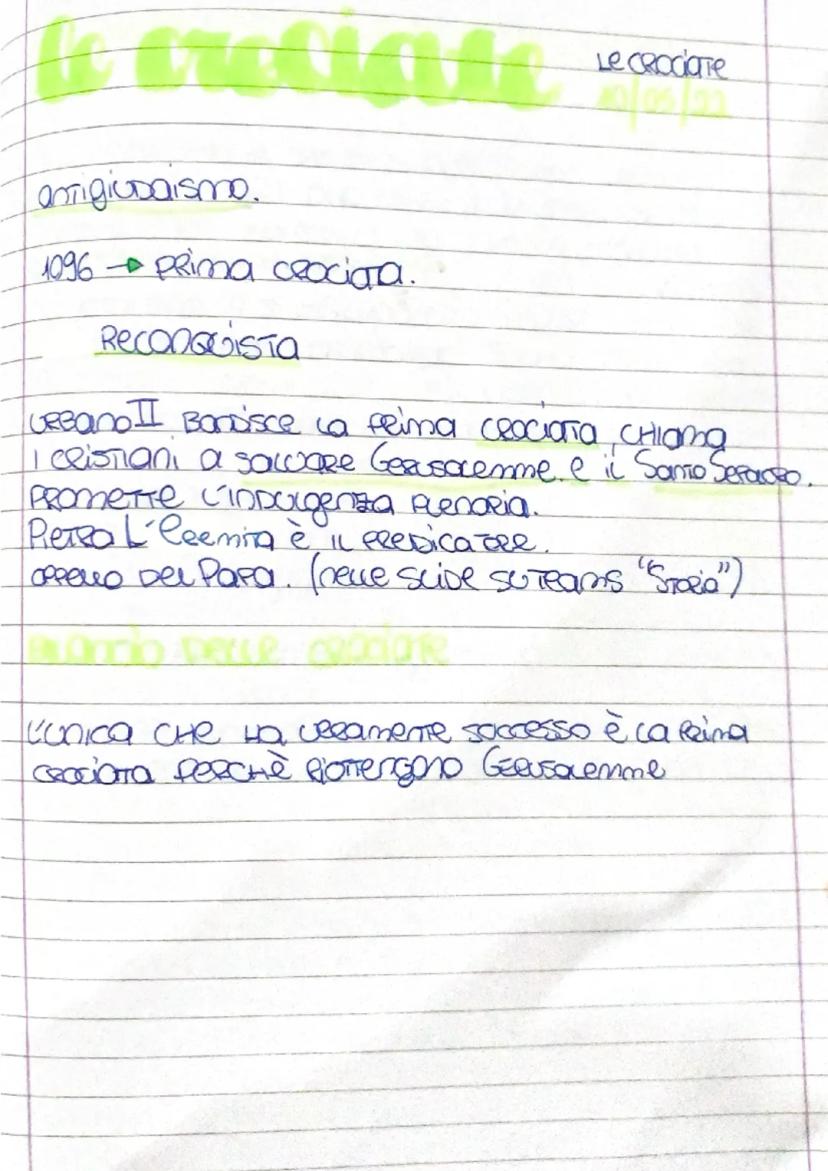 le crociate
Le crociate
10/05/22
antigiudaismo.
1096 → Prima crociata.
Reconquista
Urbano II Bandisce la prima crociata, chiama
i cristiani a salvare Gerusalemme e il Santo Sepolcro.
Promette l'indulgenza plenaria.
Pietro L'Eremita è il predicatore.
appello del Papa. (nelle slide su Teams "Storia")
Bilancio delle crociate
L'unica che ha veramente successo è la prima
crociata perchè riottengono Gerusalemme